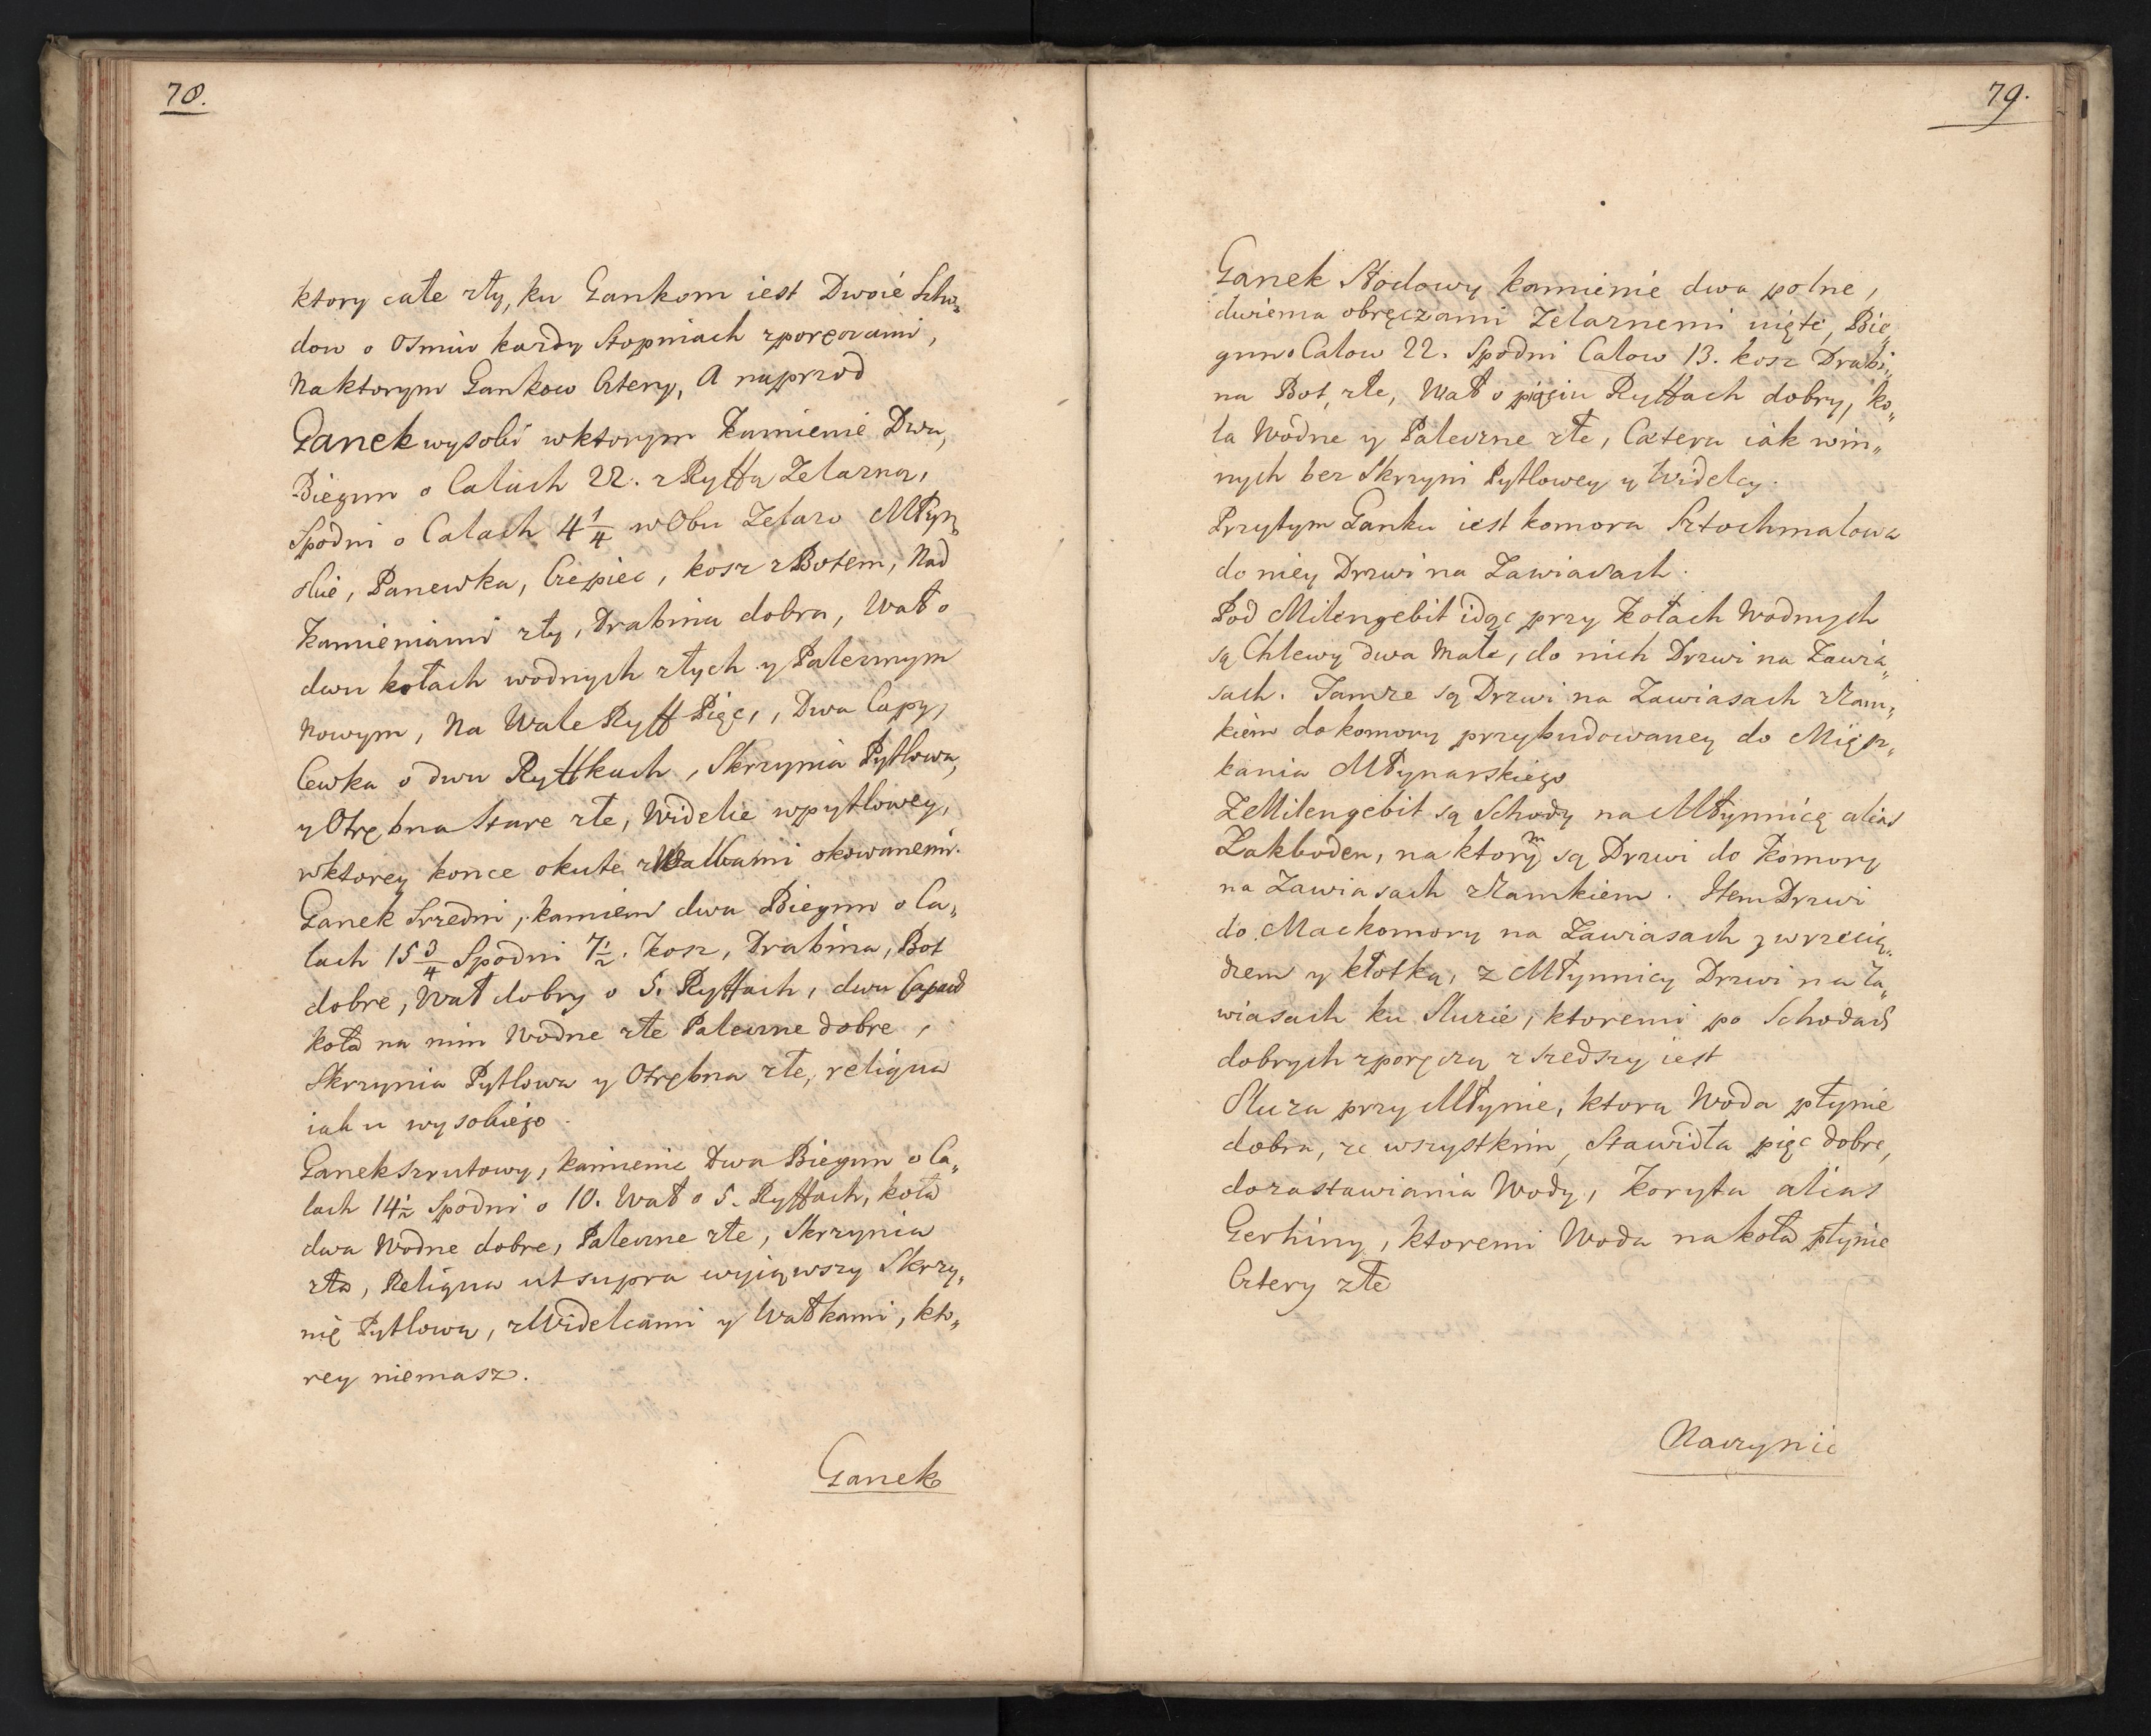 78.
ktory całe zły, ku Gankom iest Dwoie Scho„
dow o Osmiu każdy Stopniach zporęczami,
Naktorym Gankow Cztery, A naprzod
Ganek wysoki wktorym Kamienie Dwa,
Biegun o Calach 22. z Ryffą Zelazną,
Spodni o Calach 4 1/4 w Obu Zelazo Młyn„
skie, Panewka, Czepiec, kosz z Botem, Nad
Kamieniami zły, Drabina dobra, Wał o
dwu kołach wodnych złych y Palecznym
Nowym, Na Wale Ryff Pięc, Dwa Capy,
Cewka o dwu Ryffkach, Skrzynia Pytlowa,
y Otrębna Stare złe, Widelce wpytlowey,
wktorey konce okute z Wałkami okowanemi.
Ganek Srzedni, kamieni dwa Biegun o Ca„
lach 15 3/4 Spodni 7 1/2. Kosz, Drabina, Bot
dobre, Wał dobry o 5. Ryffach, dwu Capach
koła na nim Wodne złe Paleczne dobre,
Skrzynia Pytlowa y Otrębna złe, reliqua
iak u wysokiego.
Ganek Szrutowy, kamienie Dwa Biegun o Ca„
lach 14 1/2 Spodni o 10. Wał o 5. Ryffach, koła
dwa Wodne dobre, Paleczne złe, Skrzynia
zła, Reliqua ut supra wyiąwszy Skrzy„
nię Pytlową, z Widelcami y Wałkami, kto„
rey niemasz.
Ganek
79.
Ganek Słodowy kamienie dwa polne,
dwiema obręczami Zelaznemi uięte, Bie„
gun o Calow 22. Spodni Calow 13. kosz Drabi„
na Bot, złe, Wał o pięciu Ryffach dobry, ko„
ła Wodne y Paleczne złe, Cætera iak win„
nych bez Skrzyni Pytlowey y Widelcy.
Przytym Ganku iest komora Sztochmalowa
do niey Drzwi na Zawiasach.
Pod Milengebit idąc przy Kołach Wodnych
są Chlewy dwa Małe, do nich Drzwi na Zawia„
sach. Tamze są Drzwi na Zawiasach z Zam„
kiem do komory przybudowaney do Miesz„
kania Młynarskiego
Z Milengebit są Schody na Młynnicę alias
Zakboden, na ktorym są Drzwi do Komory
na Zawiasach z Zamkiem. Item Drzwi
do Mackomory na Zawiasach z wrzecią„
dzem y kłotką, z Młynnicy Drzwi na Za„
wiasach ku Sluzie, ktoremi po Schodach
dobrych zporęczą zszedszy iest
Sluza przy Młynie, ktorą Woda płynie
dobra, ze wszystkim, Stawidła pięc dobre,
do zastawiania Wody, Koryta alias
Gerhiny, ktoremi Woda na koła płynie
Cztery złe
Naczynie